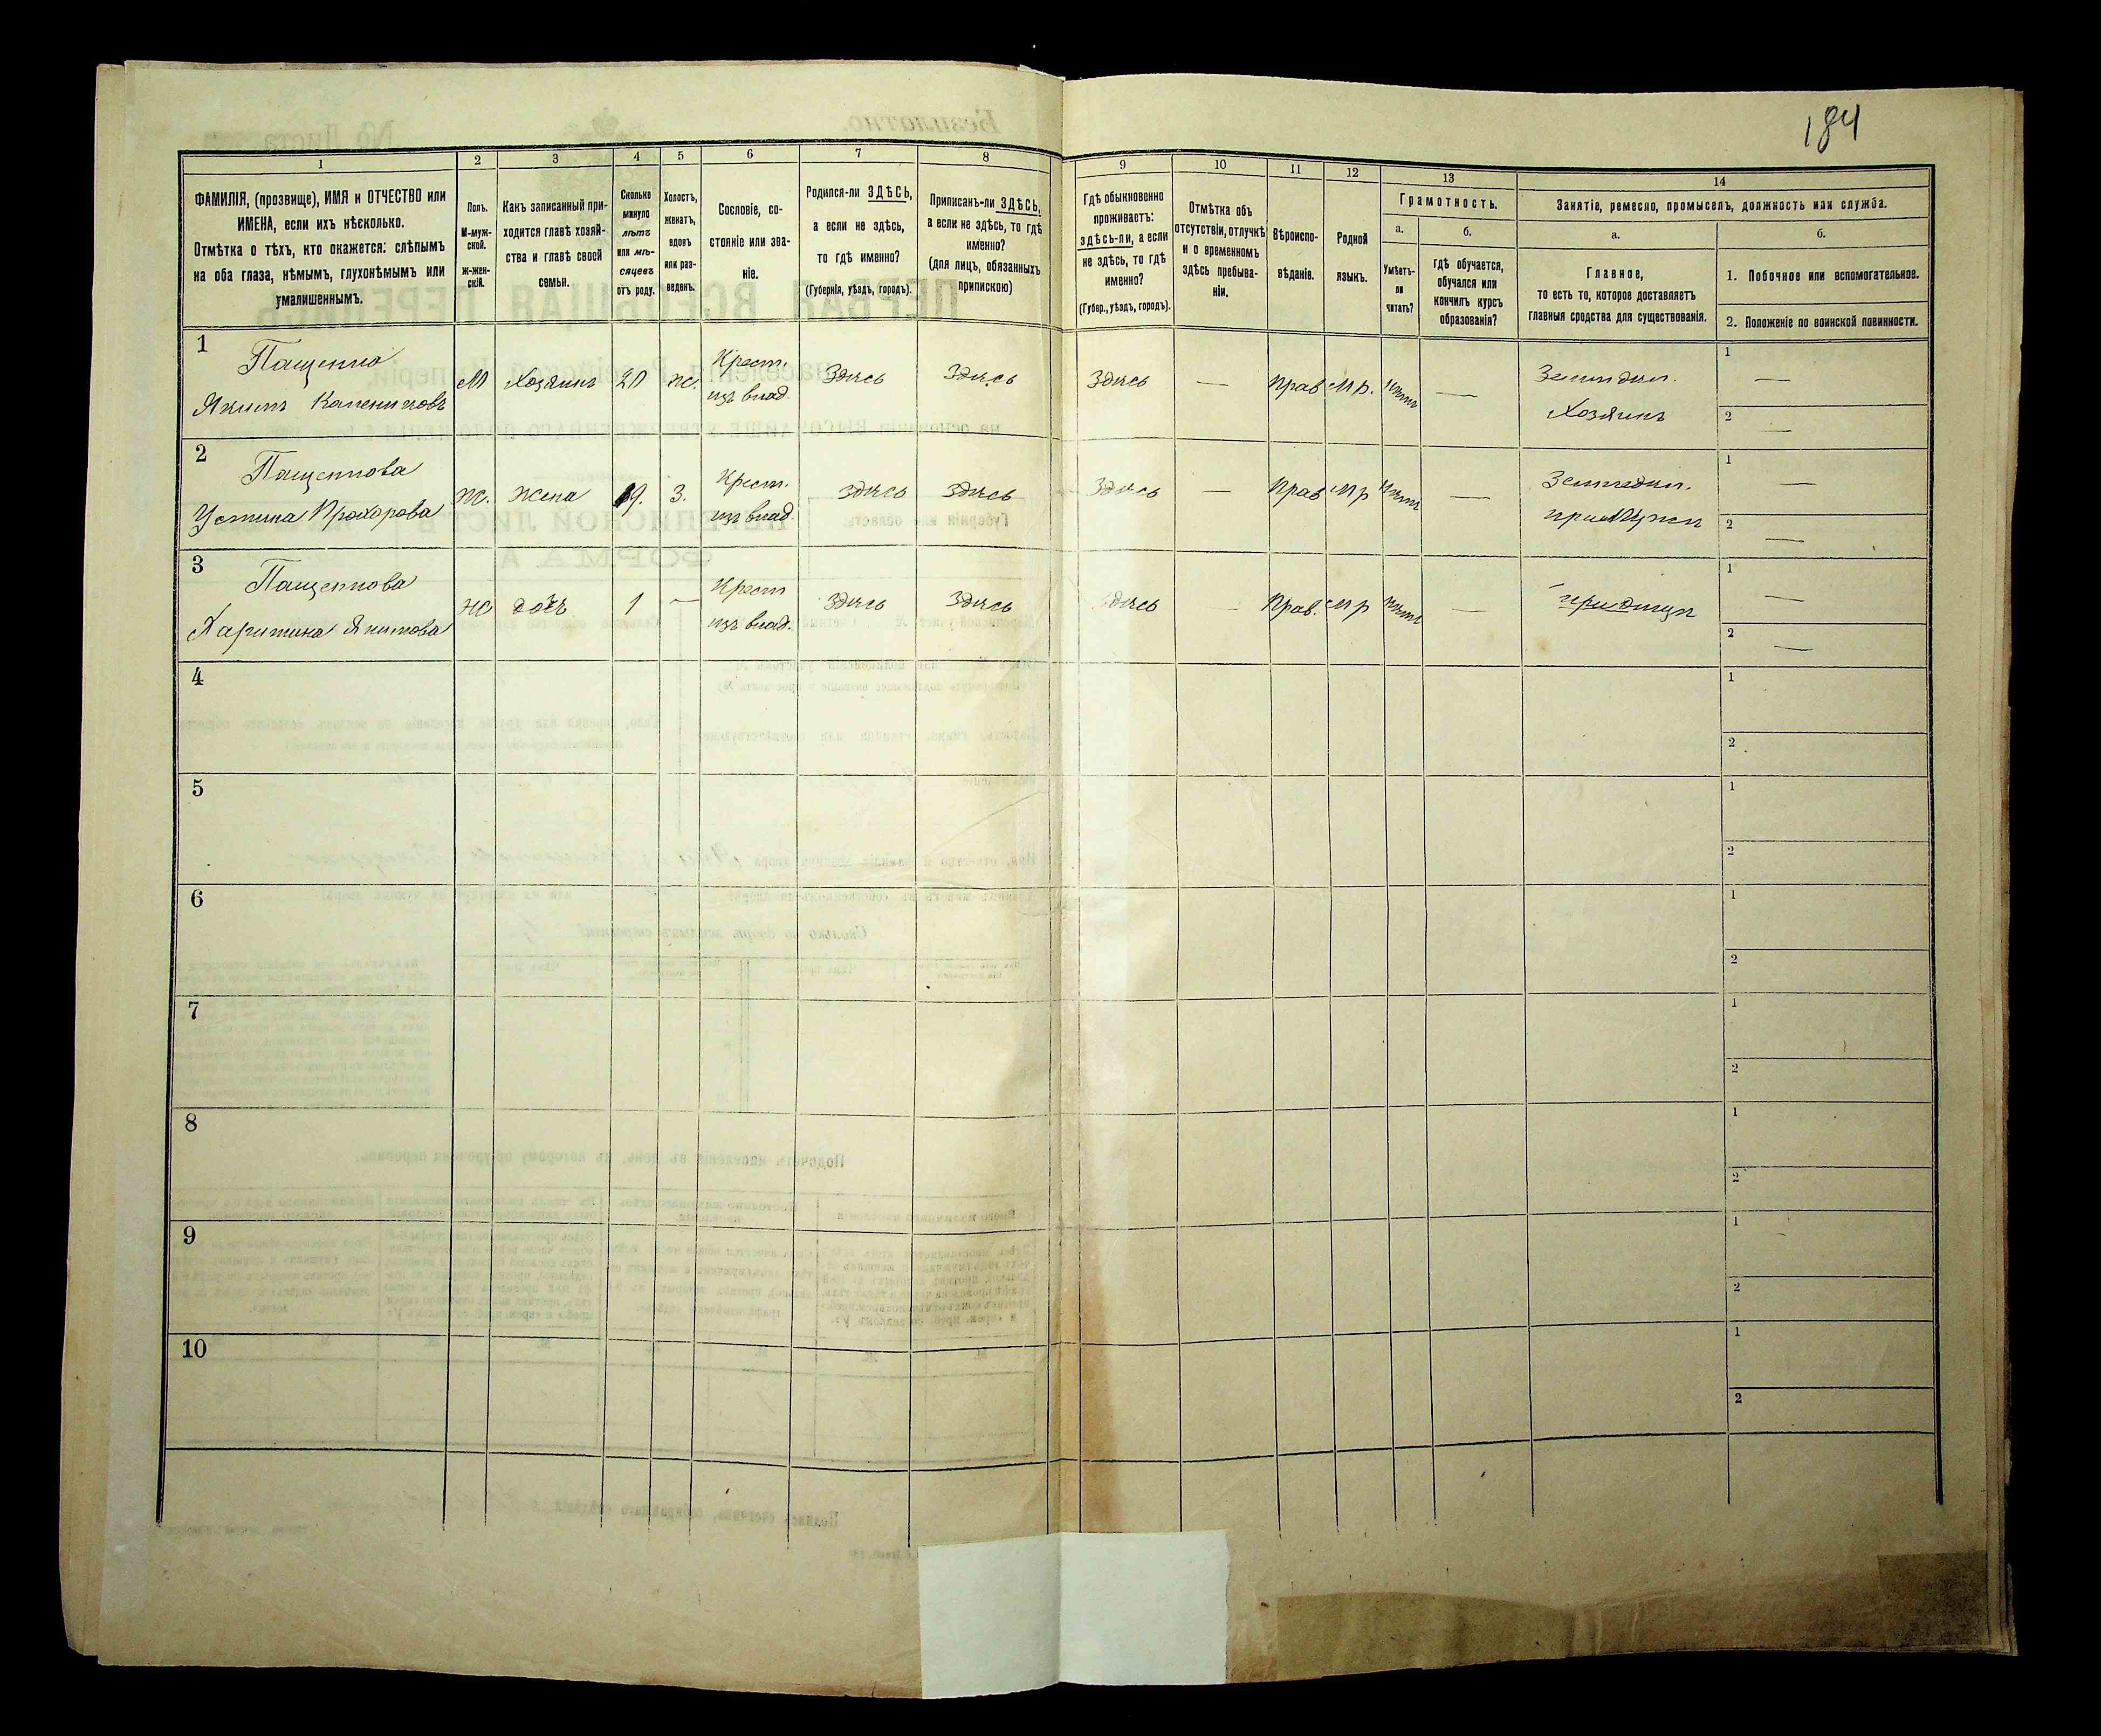 184
1 2 3 4 5 6 7 8 9 10 11 12 13 14
ФАМИЛІЯ, (прозвище), ИМЯ и ОТЧЕСТВО или
ИМЕНА, если ихъ нѣсколько.
Отмѣтка о тѣхъ, кто окажется: слѣпымъ
на оба глаза, нѣмымъ, глухонѣмымъ или
умалишеннымъ.
Полъ.
М-муж-
ской.
Ж-жен-
скій.
Какъ записанный при-
ходится главѣ хозяй-
ства и главѣ своей
семьи.
Сколько
минуло
лѣтъ
или мѣ-
сяцевъ
отъ роду.
Холостъ,
женатъ,
вдовъ
или раз-
веденъ.
Сословіе, со-
стояніе или зва-
ніе.
Родился-ли ЗДѢСЬ,
а если не здѣсь,
то гдѣ именно?
(Губернія, уѣздъ, городъ).
Приписанъ-ли ЗДѢСЬ,
а если не здѣсь, то гдѣ
именно?
(для лицъ, обязанныхъ
припискою)
Гдѣ обыкновенно
проживаетъ:
здѣсь-ли, а если
не здѣсь, то гдѣ
именно?
(Губер., уѣздъ, городъ).
Отмѣтка объ
отсутствіи, отлучкѣ
и о временномъ
здѣсь пребыва-
ніи.
Вѣроиспо-
вѣданіе.
Родной
языкъ.
Грамотность.
а.
Умѣетъ-
ли
читать?
б.
гдѣ обучается,
обучался или
кончилъ курсъ
образованія?
Занятіе, ремесло, промыселъ, должность или служба.
а.
Главное,
то есть то, которое доставляетъ
главныя средства для существованія.
б.
1. Побочное или вспомогательное.
2. Положеніе по воинской повинности.
1
Пащенко
Якимъ
М Хозяинъ 20 ж. Крест.
изъ влад.
Здѣсь Здѣсь Здѣсь — Прав Мр. нѣтъ — Земледѣл.
Хозяинъ
1 —
2 —
2
Пащенкова
Устина Прохорова
Ж. Жена 19. З. Крест.
изъ влад.
Здѣсь Здѣсь Здѣсь — Прав Мр нѣтъ — Земледѣл.
при Мужѣ
1 —
2 —
3
Пащенкова
Харитина Якимова
Ж дочь 1 — Крест
изъ влад.
Здѣсь Здѣсь Здѣсь — Прав. Мр нѣтъ — при отцѣ
1 —
2 —
4
1
2
5
1
2
6
1
2
7
1
2
8
1
2
9
1
2
10
1
2